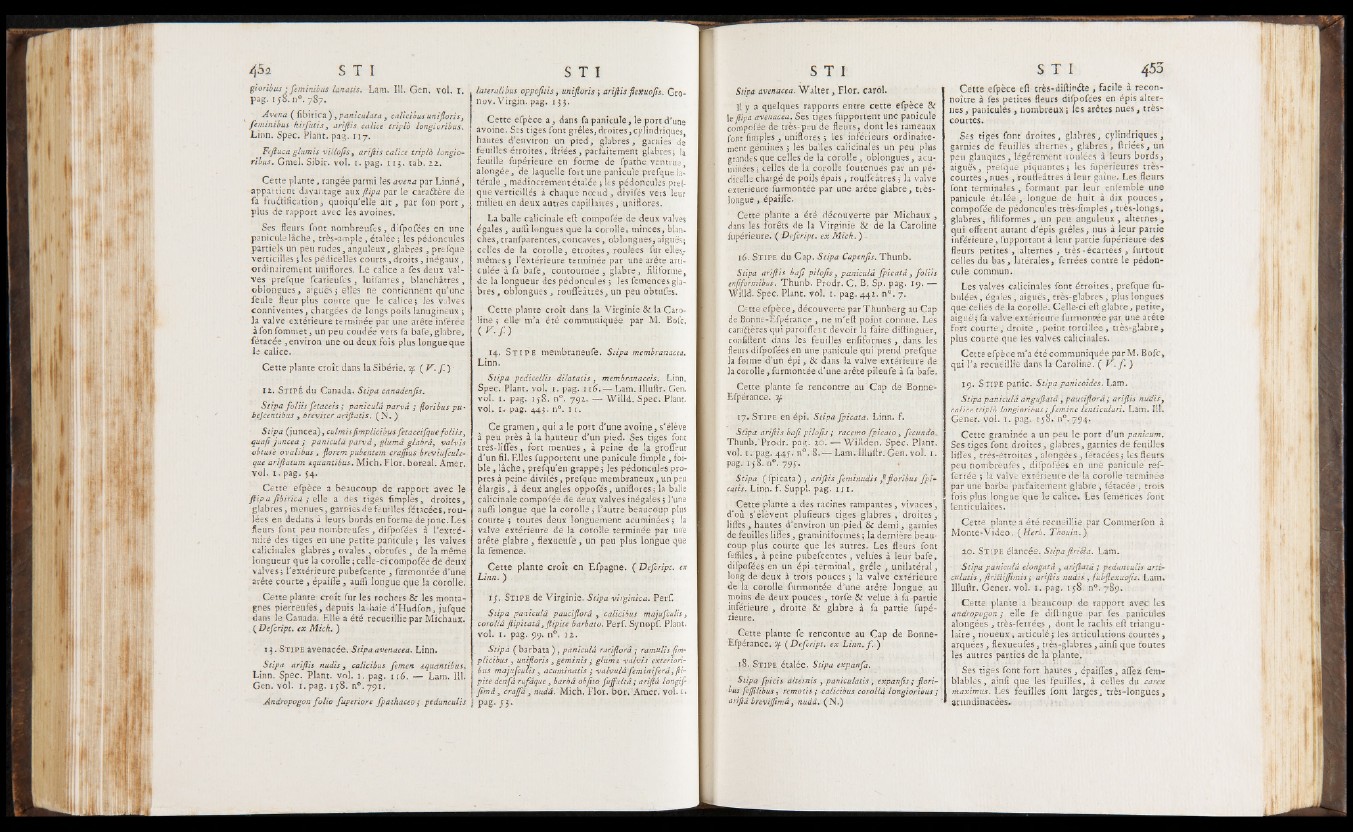 452 S T I
gioribus ; feminibus lanatis. Lam. Ill. Gen. vol. 1.
pag. 158. n°. 787.
Avena ( sibirica ), paniculata , calicibus unifloris,
feminibus hirsutis, aristis calice triplò longioribus.
Linn. Spec. Plant. pag. 117.
Festuca glumis villosis, aristis calice triplò longioribus.
Gmel. Sibir. vol. 1. pag. 113. tab. 22.
Cette plante, rangée parmi les avena par Linné,
appartient davantage aux stipa par le caractère de
sa fructification, quoiqu'elle ait, par son port,
plus de rapport avec les avoines.
Ses fleurs sont nombreuses, disposées en une
panicule lâche, très-ample, étalée ; les pédoncules
partiels un peu rudes, anguleux, glabres, presque
verticillés ; les pédicelles courts, droits, inégaux,
ordinairement uniflores. Le calice a ses deux valves
presque scarieuses, luisantes, blanchâtres,
oblongues, aiguës ; elles ne contiennent qu'une
seule fleur plus courte que le calice ; les valves
conniventes, chargées de longs poils lanugineux ;
la valve extérieure terminée par une arête insérée
à son sommet, un peu coudée vers sa base, glabre,
sétacée, environ une ou deux fois plus longue que
le calice.
Cette plante croît dans la Sibérie. ♃ ( V. s. )
12. STIPE du Canada. Stipa canadensis.
Stipa foliis setaceis ; paniculâ parvâ ; floribus pubescentibus ,
breviter aristatis. ( N. )
Stipa (juncea), culmis simplicibus setaceisque foliis,
quasi juncea ; paniculâ parvâ, glumâ glabrâ, valvis
obtusè ovalibus , florem pubentem crassius breviusculeque
aristatum equantibus. Mich. Flor. boreal. Amer.
vol. 1. pag. 54.
Cette espèce a beaucoup de rapport avec le
stipa sibirica ; elle a des tiges simples, droites,
glabres, menues, garnies de feuilles sétacées, roulées
en dedans à leurs bords en forme de jonc. Les
fleurs sont peu nombreuses, disposées à l'extrémité
des tiges en une petite panicule ; les valves
calicinales glabres, ovales, obtuses, de la même
longueur que la corolle ; celle-ci composée de deux
valves ; l'extérieure pubescente, surmontée d'une
arête courte, épaisse, aussi longue que la corolle.
Cette plante croît sur les rochers & les montagnes
pierreuses, depuis la baie d'Hudson, jusque
dans le Canada. Elle a été recueillie par Michaux.
( Descript. ex Mich. )
13. STIPE avenacée. Stipa avenacea. Linn.
Stipa aristis nudis , calicibus semen equantibus.
Linn. Spec. Plant. vol. 1. pag. 116. — Lam. Ill.
Gen. vol. 1. pag. 158. n°. 791.
Andropogon folio superiore spathaceo ; pedunculis
S T I
lateralibus oppositis, unifloris ; aristis flexuosis. Gronov.
Virgin. pag. 133.
Cette espèce a, dans sa panicule, le port d'une
avoine. Ses tiges sont grêles, droites, cylindriques,
hautes d'environ un pied, glabres, garnies de
feuilles étroites, striées, parfaitement glabres ; la
feuille supérieure en forme de spathe ventrue,
alongée, de laquelle sort une panicule presque latérale,
médiocrement étalée ; les pédoncules presque
verticillés à chaque nœud, divisés vers leur
milieu en deux autres capillaires, uniflores.
La balle calicinale est composée de deux valves
égales, aussi longues que la corolle, minces, blanches,
transparentes, concaves, oblongues, aiguës ;
celles de la corolle, étroites, roulées sur elles-mêmes ;
l'extérieure terminée par une arête articulée
à sa base, contournée, glabre, filiforme,
de la longueur des pédoncules ; les semences glabres,
oblongues, roussâtres, un peu obtuses.
Cette plante croît dans la Virginie & la Caroline ;
elle m'a été communiquée par M. Bosc.
( V. s. )
14. STIPE membraneuse. Stipa membranacea.
Linn.
Stipa pedicellis dilatatis, membranaceis. Linn.
Spec. Plant. vol. 1. pag. 116. — Lam. Illustr. Gen.
vol. 1. pag. 158. n°. 792. — Willd. Spec. Plant.
vol. 1. pag. 443. n°. 11.
Ce gramen, qui a le port d'une avoine, s'élève
à peu près à la hauteur d'un pied. Ses tiges sont
très-lisses, fort menues, à peine de la grosseur
d'un fil. Elles supportent une panicule simple, foible,
lâche, presqu'en grappe ; les pédoncules propres
à peine divisés, presque membraneux, un peu
élargis, à deux angles opposés, uniflores ; la balle
calicinale composée de deux valves inégales ; l'une
aussi longue que la corolle ; l'autre beaucoup plus
courte ; toutes deux longuement acuminées ; la
valve extérieure de la corolle terminée par une
arête glabre, flexueuse, un peu plus longue que
la semence.
Cette plante croît en Espagne. ( Descript. ex
Linn. )
15. STIPE de Virginie. Stipa virginica. Pers.
Stipa paniculâ pauciflorâ , calicibus majusculis,
corollâ stipitatâ, stipite barbato. Pers. Synops. Plant.
vol. 1. pag. 99. n°. 12.
Stipa ( barbata ), paniculâ rariflorâ ; ramulis simplicibus ,
unifloris , geminis ; glumæ valvis exterioribus
majusculis , acuminatis ; valvulâ seminiferâ, stipite
densâ rufâque, barbâ obsito suffultâ; aristâ longissimâ,
crassâ, nudâ. Mich. Flor. bor. Amer. vol. 1.
pag. 53.
S T I
Stipa avenacea. Walter, Flor. carol.
Il y a quelques rapports entre cette espèce &
le stipa avenacea. Ses tiges supportent une panicule
composée de très-peu de fleurs, dont les rameaux
sont simples, uniflores ; les inférieurs ordinairement
géminés ; les balles calicinales un peu plus
grandes que celles de la corolle, oblongues, acuminées ;
celles de la corolle soutenues par un pédicelle
chargé de poils épais, roussâtres ; la valve
extérieure surmontée par une arête glabre, très-longue,
épaisse.
Cette plante a été découverte par Michaux,
dans les forêts de la Virginie & de la Caroline
supérieure. ( Descript. ex Mich. )
16. STIPE du Cap. Stipa Capensis. Thunb.
Stipa aristis basi pilosis, paniculâ spicatâ, foliis
ensiformibus. Thunb. Prodr. C. B. Sp. pag. 19. —
Willd. Spec. Plant. vol. 1. pag. 442. n°. 7.
Cette espèce, découverte par Thunberg au Cap
de Bonne-Espérance, ne m'est point connue. Les
caractères qui paroissent devoir la faire distinguer,
consistent dans les feuilles ensiformes, dans les
fleurs disposées en une panicule qui prend presque
la forme d'un épi, & dans la valve extérieure de
la corolle, surmontée d'une arête pileuse à sa base.
Cette plante se rencontre au Cap de Bonne-Espérance. ♃
17. STIPE en épi. Stipa spicata. Linn. f.
Stipa aristis basi pilosis ; racemo spicato, secundo.
Thunb. Prodr. pag. 20. — Willden. Spec. Plant.
vol. 1. pag. 445. n°. 8. — Lam. Illustr. Gen. vol. 1.
pag. 158. n°. 795.
Stipa ( spicata ), aristis seminudis, floribus spicatis.
Linn. f. Suppl. pag. 111.
Cette plante a des racines rampantes, vivaces,
d'où s'élèvent plusieurs tiges glabres, droites,
lisses, hautes d'environ un pied & demi, garnies
de feuilles lisses, graminiformes ; la dernière beaucoup
plus courte que les autres. Les fleurs sont
sessiles, à peine pubescentes, velues à leur base,
disposées en un épi terminal, grêle, unilatéral,
long de deux à trois pouces ; la valve extérieure
de la corolle surmontée d'une arête longue au
moins de deux pouces, torse & velue à sa partie
inférieure, droite & glabre à sa partie supérieure.
Cette plante se rencontre au Cap de Bonne-Espérance. ♃
( Descript. ex Linn. f. )
18. STIPE étalée. Stipa expansa.
Stipa spicis alternis , paniculatis , expansis ; floribus
sessilibus , remotis ; calicibus corollâ longioribus ;
aristâ brevissimâ, nudâ. ( N.)
S T I 453
Cette espèce est très-distincte, facile à reconnoître
à ses petites fleurs disposées en épis alternes,
paniculés, nombreux ; les arêtes nues, très-courtes.
Ses tiges sont droites, glabres, cylindriques,
garnies de feuilles alternes, glabres, striées, un
peu glauques, légérement roulées à leurs bords,
aiguës, presque piquantes ; les supérieures très-courtes,
nues, roussâtres à leur gaîne. Les fleurs
sont terminales, formant par leur ensemble une
panicule étalée, longue de huit à dix pouces,
composée de pédoncules très-simples, très-longs,
glabres, filiformes, un peu anguleux, alternes,
qui offrent autant d'épis grêles, nus à leur partie
inférieure, supportant à leur partie supérieure des
fleurs petites, alternes, très-écartées, surtout
celles du bas, latérales, serrées contre le pédoncule
commun.
Les valves calicinales sont étroites, presque subulées,
égales, aiguës, très-glabres, plus longues
que celles de la corolle. Celle-ci est glabre, petite,
aiguë; sa valve extérieure surmontée par une arête
fort courte, droite, point tortillée, très-glabre,
plus courte que les valves calicinales.
Cette espèce m'a été communiquée par M. Bosc,
qui l'a recueillie dans la Caroline. ( V. s. )
19. STIPE panic. Stipa panicoides. Lam.
Stipa paniculâ angustatâ , pauciflorâ ; aristis nudis,
calice triplò longioribus ; semine lenticulari. Lam. Ill.
Gener. vol. 1. pag. 158. n°. 794.
Cette graminée a un peu le port d'un panicum.
Ses tiges sont droites, glabres, garnies de feuilles
lisses, très-étroites, alongées, sétacées ; les fleurs
peu nombreuses, disposées en une panicule resserrée ;
la valve extérieure de la corolle terminée
par une barbe parfaitement glabre, sétacée, trois
fois plus longue que le calice. Les semences sont
lenticulaires.
Cette plante a été recueillie par Commerson à
Monte-Video. ( Herb. Thouin. )
20. STIPE élancée. Stipa stricta. Lam.
Stipa paniculâ elongatâ , aristatâ ; pedunculis articulatis,
strictissimis ; aristis nudis , subflexuosis. Lam.
Illustr. Gener. vol. 1. pag. 158. n°. 789.
Cette plante a beaucoup de rapport avec les
andropogon ; elle se distingue par ses panicules
alongées, très-serrées, dont le rachis est triangulaire,
noueux, articulé ; les articulations courtes,
arquées, flexueuses, très-glabres, ainsi que toutes
les autres parties de la plante.
Ses tiges sont fort hautes, épaisses, assez semblables,
ainsi que les feuilles, à celles du carex
maximus. Les feuilles sont larges, très-longues,
arundinacées.